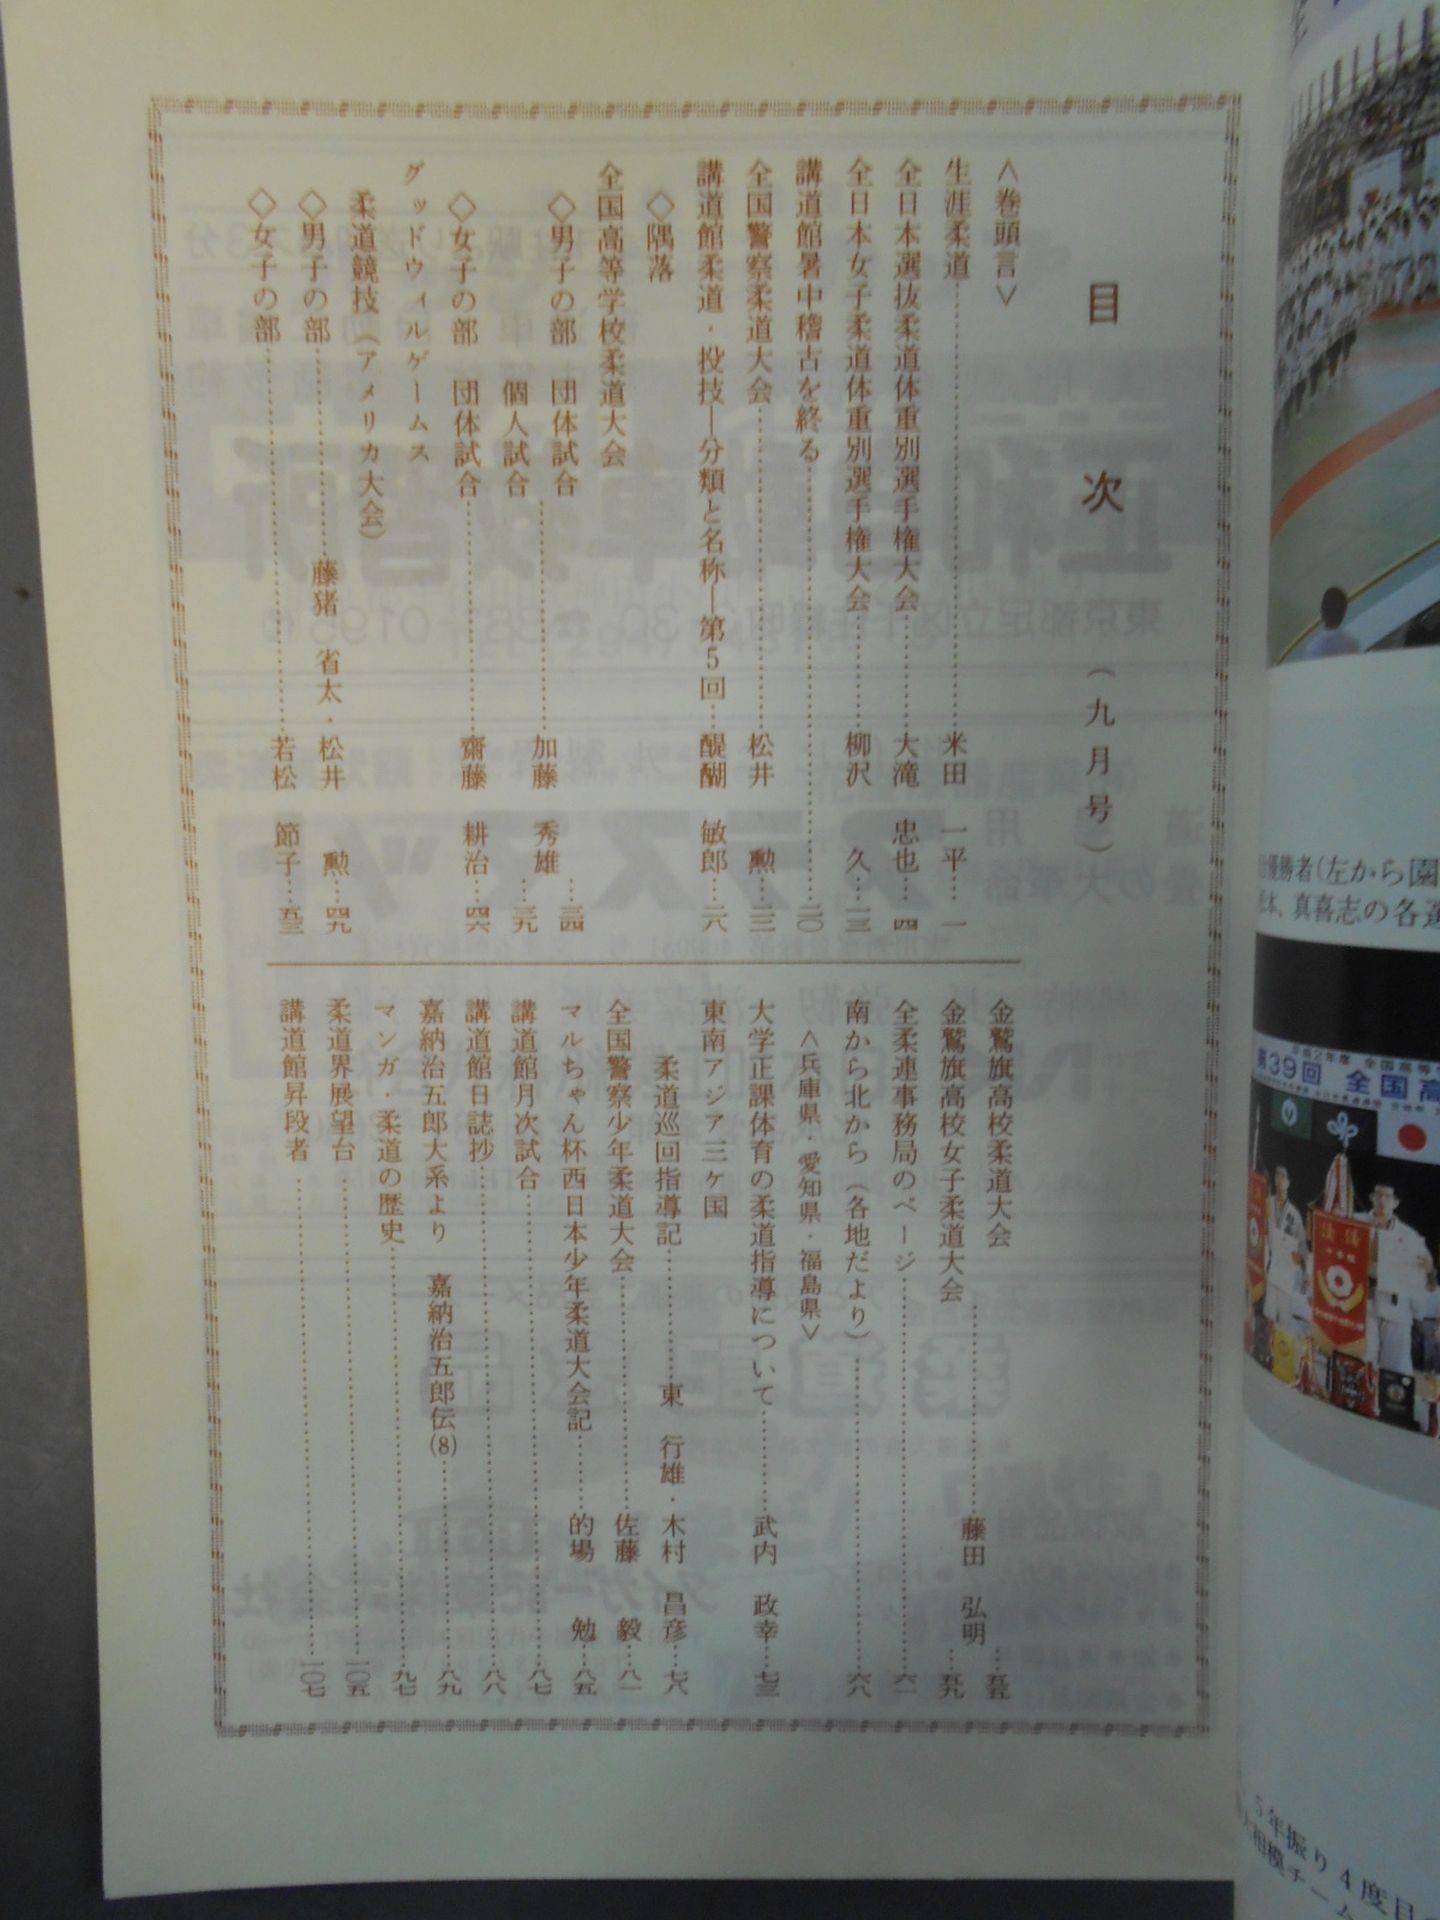 目次(九月号)
<巻頭言>
生涯柔道……米田 一平…一
全日本選抜柔道体重別選手権大会……大滝 忠也…四
全日本女子柔道体重別選手権大会……柳沢 久…一三
講道館暑中稽古を終る……二〇
全国警察柔道大会……松井 勲…二二
講道館柔道・投技―分類と名称―第5回…醍醐 敏郎…二八
◇隅落
全国高等学校柔道大会
◇男子の部 団体試合……加藤 秀雄…三四
個人試合 …三九
◇女子の部 団体試合……齋藤 耕治…四六
グッドウィルゲームス
柔道競技(アメリカ大会)
◇男子の部……藤猪 省太・松井 勲…四九
◇女子の部……若松 節子…五三
金鷲旗高校柔道大会 …五五
金鷲旗高校女子柔道大会……藤田 弘明…五九
全柔連事務局のページ……六一
南から北から(各地だより)……六八
<兵庫県・愛知県・福島県>
大学正課体育の柔道指導について……武内 政幸…七三
東南アジア三ケ国
柔道巡回指導記……東 行雄・木村 昌彦…七八
全国警察少年柔道大会……佐藤 毅…八一
マルちゃん杯西日本少年柔道大会記……的場 勉…八五
講道館月次試合……八七
講道館日誌抄……八八
嘉納治五郎大系より 嘉納治五郎伝(8)……八九
マンガ・柔道の歴史……九七
柔道界展望台……一〇五
講道館昇段者……一〇七
優勝者(左から園
本、真喜志の各選
平成2年度 全国高等
第39回 全国高
優勝
5年振り4度目
相模チーム